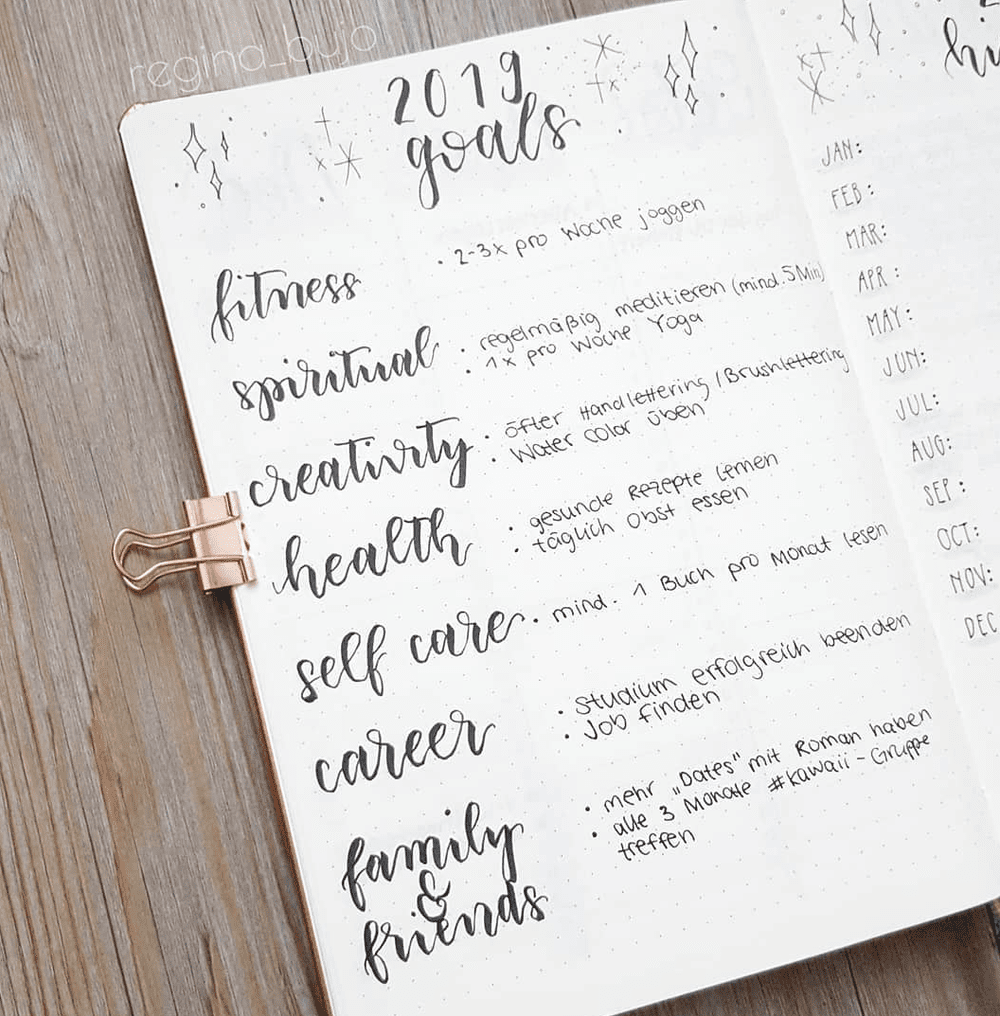 regina_byjo
2019
goals
fitness
· 2-3x pro Woche joggen
spiritual
· regelmäßig meditieren (mind. 5 Min)
· 1x pro Woche Yoga
creativity
· öfter Handlettering / Brushlettering
· Water Color üben
health
· gesunde Rezepte lernen
· täglich Obst essen
self care
· mind. 1 Buch pro Monat lesen
career
· Studium erfolgreich beenden
· Job finden
family
&
friends
· mehr „Dates" mit Roman haben
· alle 3 Monate #kawaii-Gruppe
treffen
JAN:
FEB:
MAR:
APR:
MAY:
JUN:
JUL:
AUG:
SEP:
OCT:
NOV:
DEC